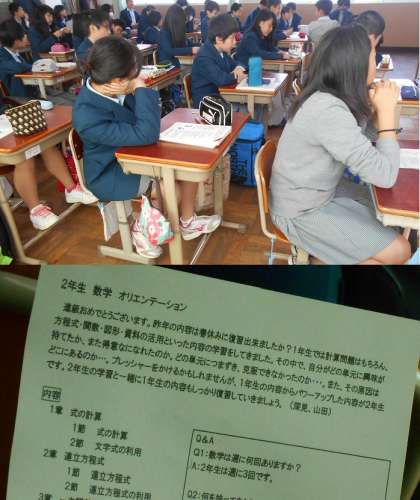 2年生 数学 オリエンテーション
進級おめでとうございます。昨年の内容は春休みに復習出来ましたか？1年生では計算問題はもちろん、
方程式・関数・図形・資料の活用といった内容の学習をしてきました。その中で、自分がどの単元に興味が
持てたか、また得意になれたのか。どの単元につまずき、克服できなかったのか・・・。また、その原因は
どこにあるのか…。プレッシャーをかけるかもしれませんが、1年生の内容からパワーアップした内容が2年生
です。2年生の学習と一緒に1年生の内容もしっかり復習していきましょう。（深見、山田）
内容
1章 式の計算
1節 式の計算
2節 文字式の利用
2章 連立方程式
1節 連立方程式
2節 連立方程式の利用
Q&A
Q1：数学は週に何回ありますか？
A：2年生は週に3回です。